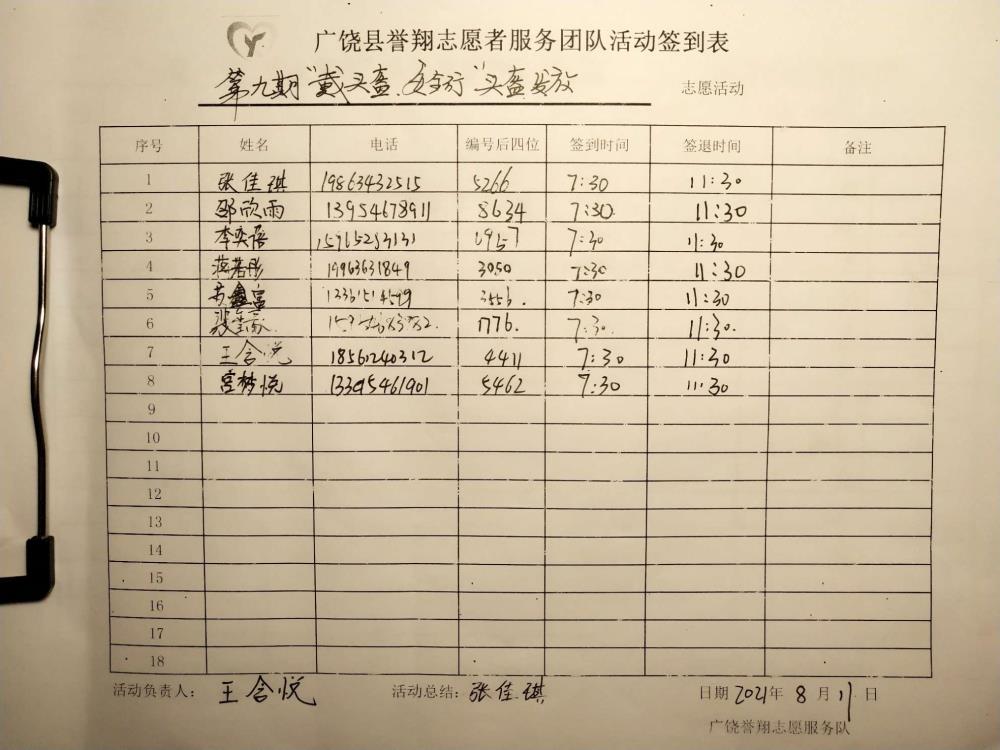 广饶县誉翔志愿者服务团队活动签到表
第九期"戴头盔、安全行"头盔发放 志愿活动
序号 姓名 电话 编号后四位 签到时间 签退时间 备注
1 张佳琪 19863432515 5266 7:30 11:30
2 邵欣雨 13954678911 8634 7:30 11:30
3 李奕语 15965253131 0957 7:30 11:30
4 蒋若彤 19963631849 3050 7:30 11:30
5 鑫富 3556. 7:30 11:30
6 1776. 7:30. 11:30.
7 王含悦 18561240312 4411 7:30 11:30
8 宫梦悦 13395461901 5462 7:30 11:30
9
10
11
12
13
14
15
16
17
18
活动负责人: 王含悦 活动总结: 张佳琪 日期 2021年 8月 11日
广饶誉翔志愿服务队